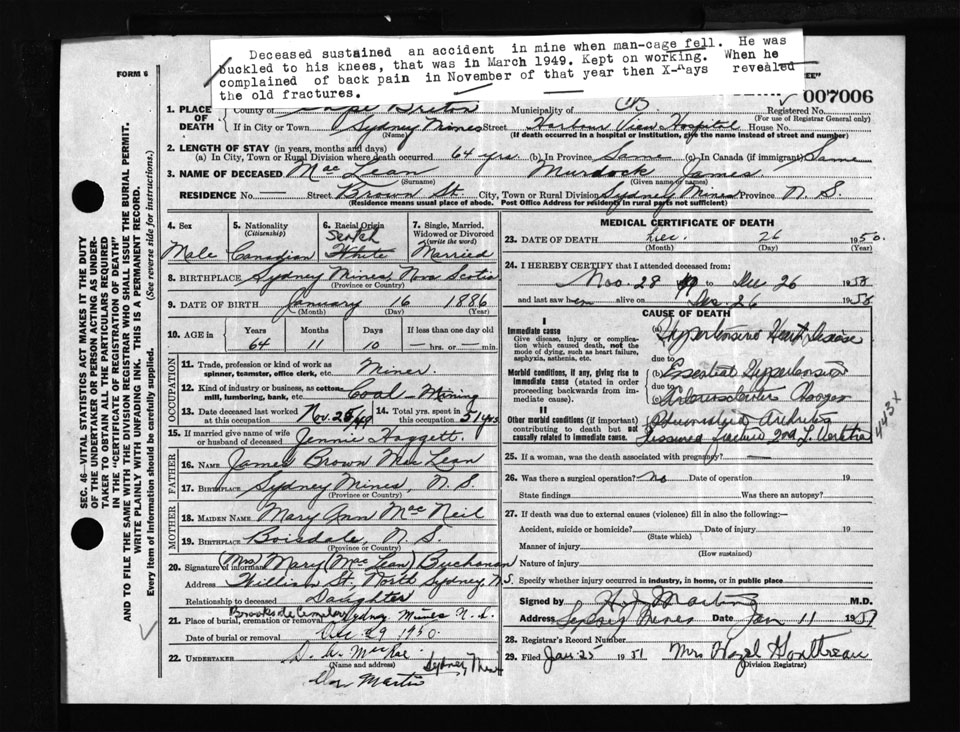 Deceased sustained an accident in mine when man-cage fell. He was
buckled to his knees, that was in March 1949. Kept on working. When he
complained of back pain in November of that year then X-rays revealed
the old fractures.
FORM 6
007006
1. PLACE OF DEATH County of Cape Breton Municipality of CB Registered No.
(For use of Registrar General only)
If in City or Town Sydney Mines Street Harbour View Hospital House No.
(If death occurred in a hospital or institution, give the name instead of street and number)
2. LENGTH OF STAY (in years, months and days)
(a) In City, Town or Rural Division where death occurred 64 yrs. (b) In Province Same (c) In Canada (if immigrant) Same
3. NAME OF DECEASED Mac Lean Murdock James
(Surname) (Given name or names)
RESIDENCE No. — Street Brown St. City, Town or Rural Division Sydney Mines Province N. S.
(Residence means usual place of abode. Post Office Address for residents in rural parts not sufficient)
4. Sex 5. Nationality (Citizenship) 6. Racial Origin 7. Single, Married, Widowed or Divorced (write the word)
Male Canadian Scotch White Married
8. BIRTHPLACE Sydney Mines Nova Scotia
(Province or Country)
9. DATE OF BIRTH January 16 1886
(Month) (Day) (Year)
10. AGE in Years Months Days If less than one day old
64 11 10 — hrs. or — min.
OCCUPATION
11. Trade, profession or kind of work as spinner, teamster, office clerk, etc. Miner
12. Kind of industry or business, as cotton mill, lumbering, bank, etc. Coal - Mining
13. Date deceased last worked at this occupation Nov. 28/49 14. Total yrs. spent in this occupation 51 yrs.
15. If married give name of wife or husband of deceased Jennie Haggett
FATHER
16. NAME James Brown Mac Lean
17. BIRTHPLACE Sydney Mines, N. S.
(Province or Country)
MOTHER
18. MAIDEN NAME Mary Ann Mac Neil
19. BIRTHPLACE Boisdale, N. S.
(Province or Country)
20. Signature of informant (Mrs) Mary (Mac Lean) Buchanan
Address William St. North Sydney N.S.
Relationship to deceased Daughter
21. Place of burial, cremation or removal Brookside Cemetery Sydney Mines N. S.
Date of burial or removal Dec 29 1950
22. UNDERTAKER
(Name and address)
MEDICAL CERTIFICATE OF DEATH
23. DATE OF DEATH Dec. 26 1950
(Month) (Day) (Year)
24. I HEREBY CERTIFY that I attended deceased from:
Nov 28 to Dec 26 1950
and last saw him alive on Dec. 26 1950
CAUSE OF DEATH
I
Immediate cause
Give disease, injury or complication which caused death, not the mode of dying, such as heart failure, asphyxia, asthenia, etc.
(a) Hypertensive Heart Disease
due to
Morbid conditions, if any, giving rise to immediate cause (stated in order proceeding backwards from immediate cause).
(b) Essential Hypertension
due to
(c) Arteriosclerotic Changes
II
Other morbid conditions (if important) contributing to death but not causally related to immediate cause.
Rheumatoid Arthritis
443X
25. If a woman, was the death associated with pregnancy? —
26. Was there a surgical operation? No Date of operation 19
State findings Was there an autopsy?
27. If death was due to external causes (violence) fill in also the following:—
Accident, suicide or homicide? Date of injury 19
(State which)
Manner of injury
(How sustained)
Nature of injury
Specify whether injury occurred in industry, in home, or in public place
Signed by M.D.
Address Sydney Mines Date Jan 11 1951
28. Registrar's Record Number
29. Filed Jan 25 1951 Mrs Hazel
Division Registrar)
SEC. 46—VITAL STATISTICS ACT MAKES IT THE DUTY
OF THE UNDERTAKER OR PERSON ACTING AS UNDERTAKER TO OBTAIN ALL THE PARTICULARS REQUIRED
IN THE "CERTIFICATE OF REGISTRATION OF DEATH"
AND TO FILE THE SAME WITH THE DIVISION REGISTRAR WHO SHALL ISSUE THE BURIAL PERMIT.
WRITE PLAINLY WITH UNFADING INK. THIS IS A PERMANENT RECORD.
Every item of information should be carefully supplied. (See reverse side for instructions.)